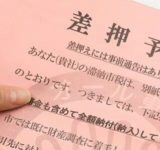 差押予
差押えには事前通告はあ
あなた(貴社)の滞納市税は、別紙
のとおりです。つきましては、下記
金も含めて全額納付(納入)して
市では既に財産調査に着手し